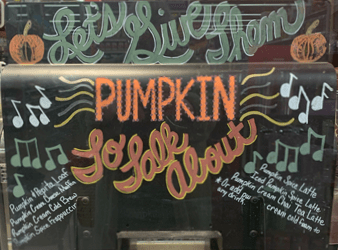 Let's Give Them
PUMPKIN
To Talk
About
Pumpkin & Pepita Loaf
Pumpkin Cream Cheese Muffin
Pumpkin Cream Cold Brew
Pumpkin Sauce Frappuccino
* Or add pur
any drink
Pumpkin Spice Latte
Iced Pumpkin Spice Latte
Pumpkin Cream Chai Tea Latte
Pumpkin cream cold foam to